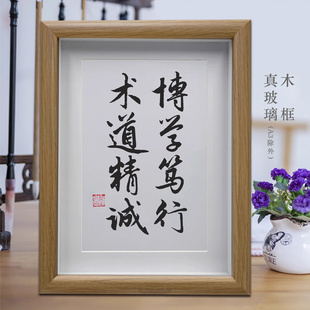 博学笃行
术道精诚
木框
真玻璃(A3除外)